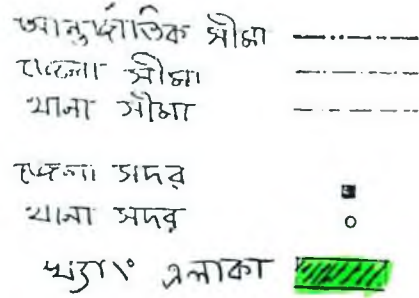 আন্তর্জাতিক সীমা
জেলা সীমা
থানা সীমা
জেলা সদর
থানা সদর
এলাকা